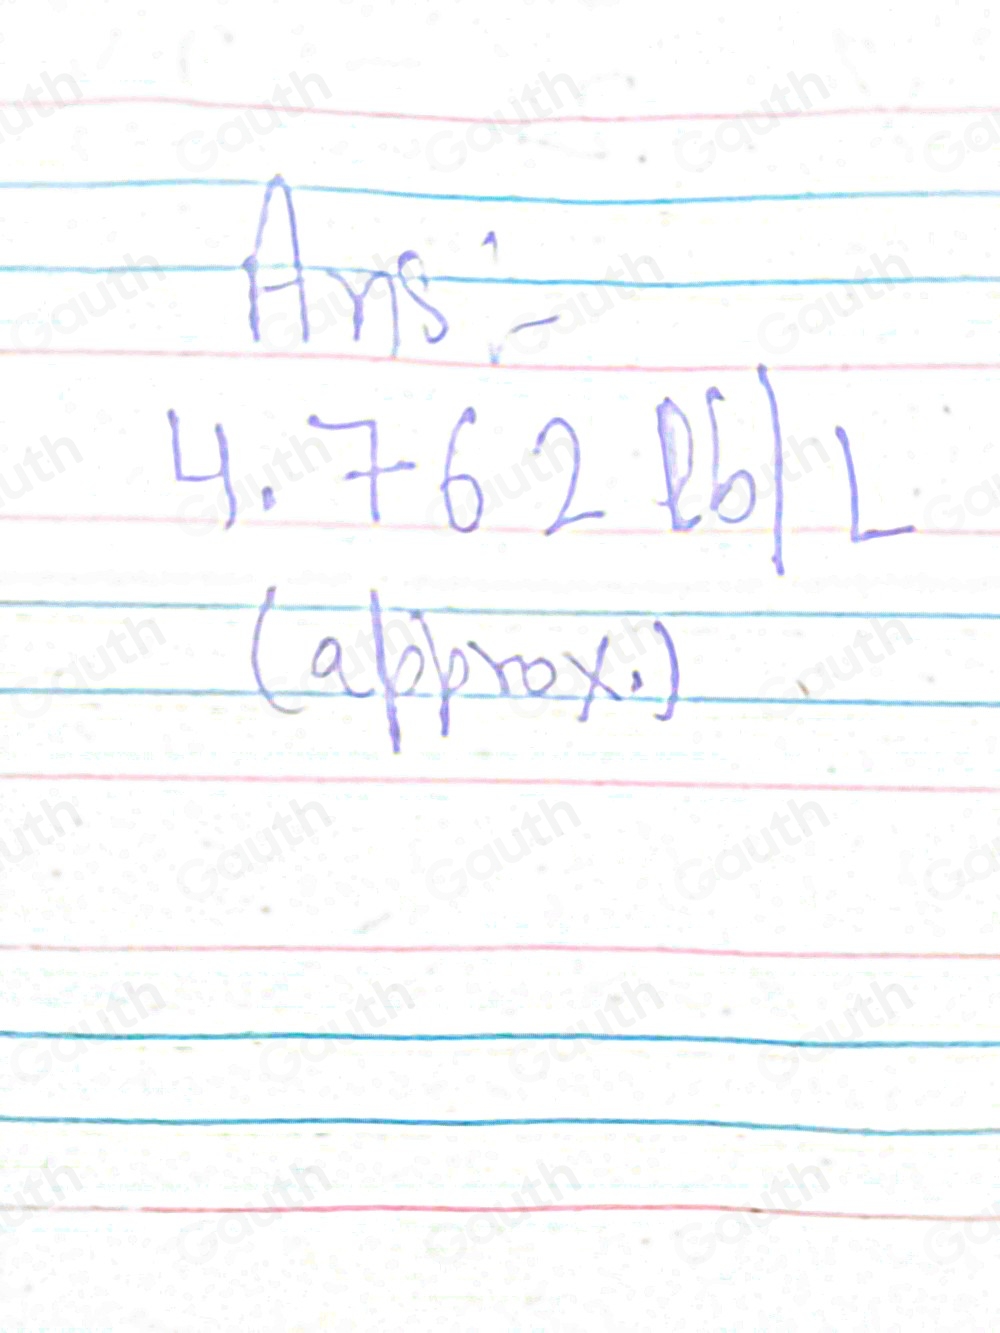 Ans:-
4.762 lb/L
(approx.)